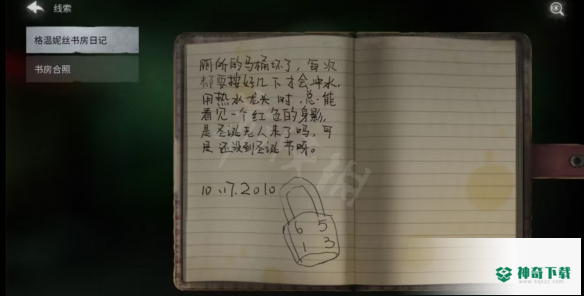 线索
格温妮丝书房日记
书房合照
厕所的马桶坏了，每次
都要按好几下才会冲水，
用热水龙头时，总能
看见一个红色的身影，
是圣诞老人来了吗，可
是还没到圣诞节呀。
10.17.2010
6 5
1 3
神奇下载